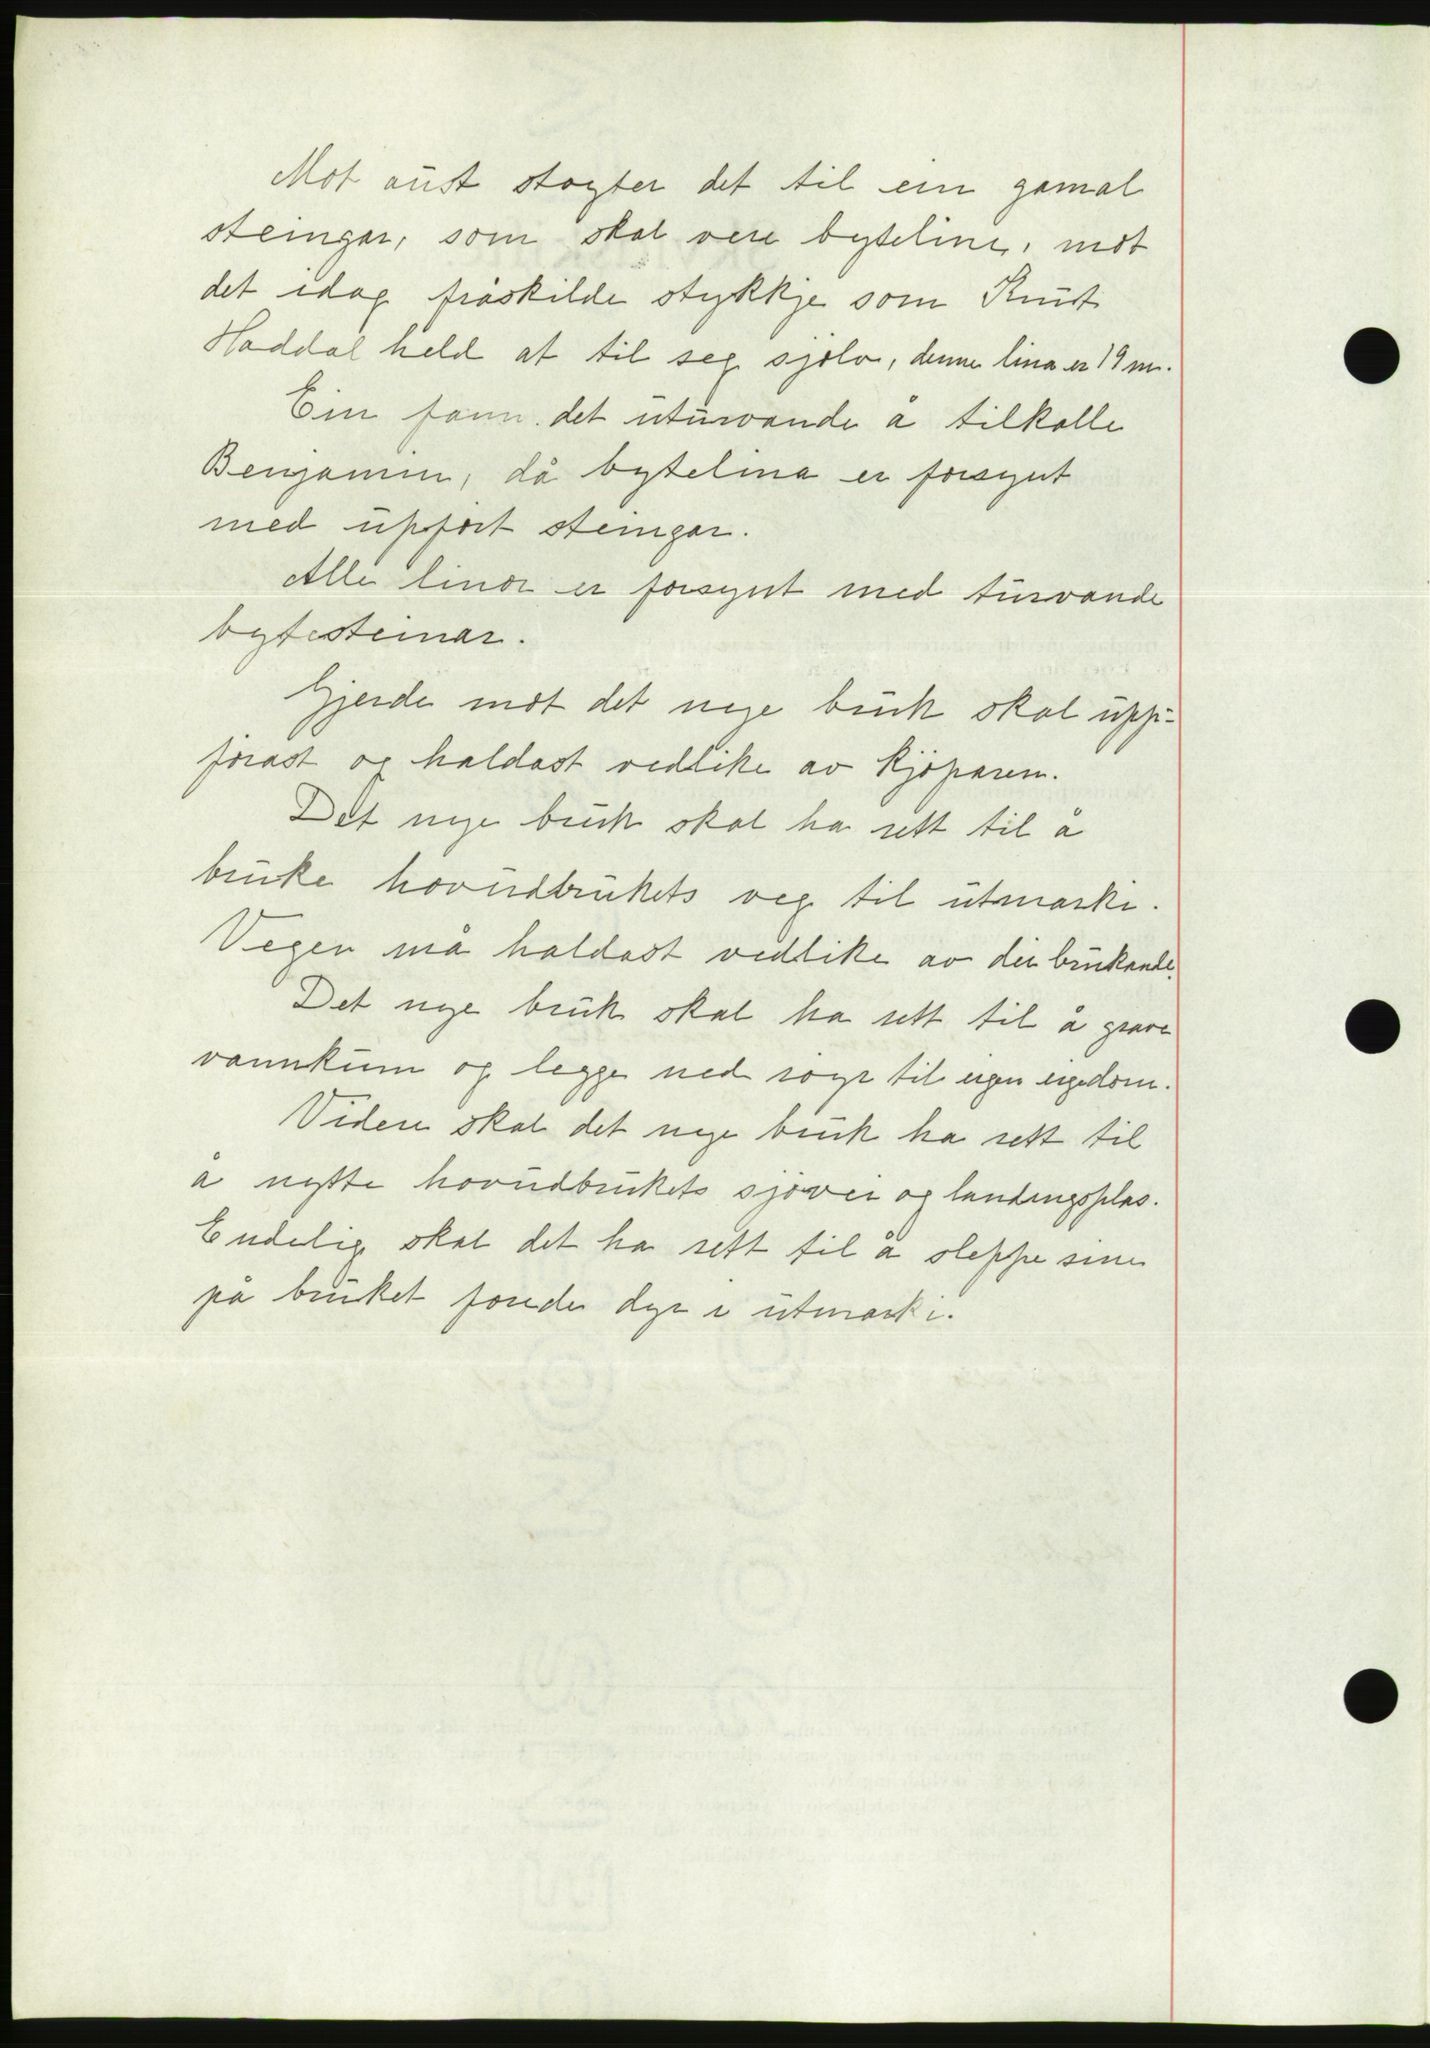 Mot aust støyter det til ein gamal
steingar, som skal vere byteline, mot
det idag fråskilde stykkje som Knut
Haddal held at til seg sjølv, denne lina er 19 m.
Ein fann det uturvande å tilkalle
Benjamin, då bytelina er forsynt
med uppført steingar.
Alle linor er forsynt med turvande
bytesteinar.
Gjerde mot det nye bruk skal upp-
førast og haldast vedlike av kjøparen.
Det nye bruk skal ha rett til å
bruke hovudbrukets veg til utmarki.
Vegen må haldast vedlike av dei brukande.
Det nye bruk skal ha rett til å grave
vannkum og legge ned røyr til eigen eigedom.
Videre skal det nye bruk ha rett til
å nytte hovudbrukets sjøvei og landingsplas.
Endelig skal det ha rett til å sleppe sine
på bruket forede dyr i utmarki.